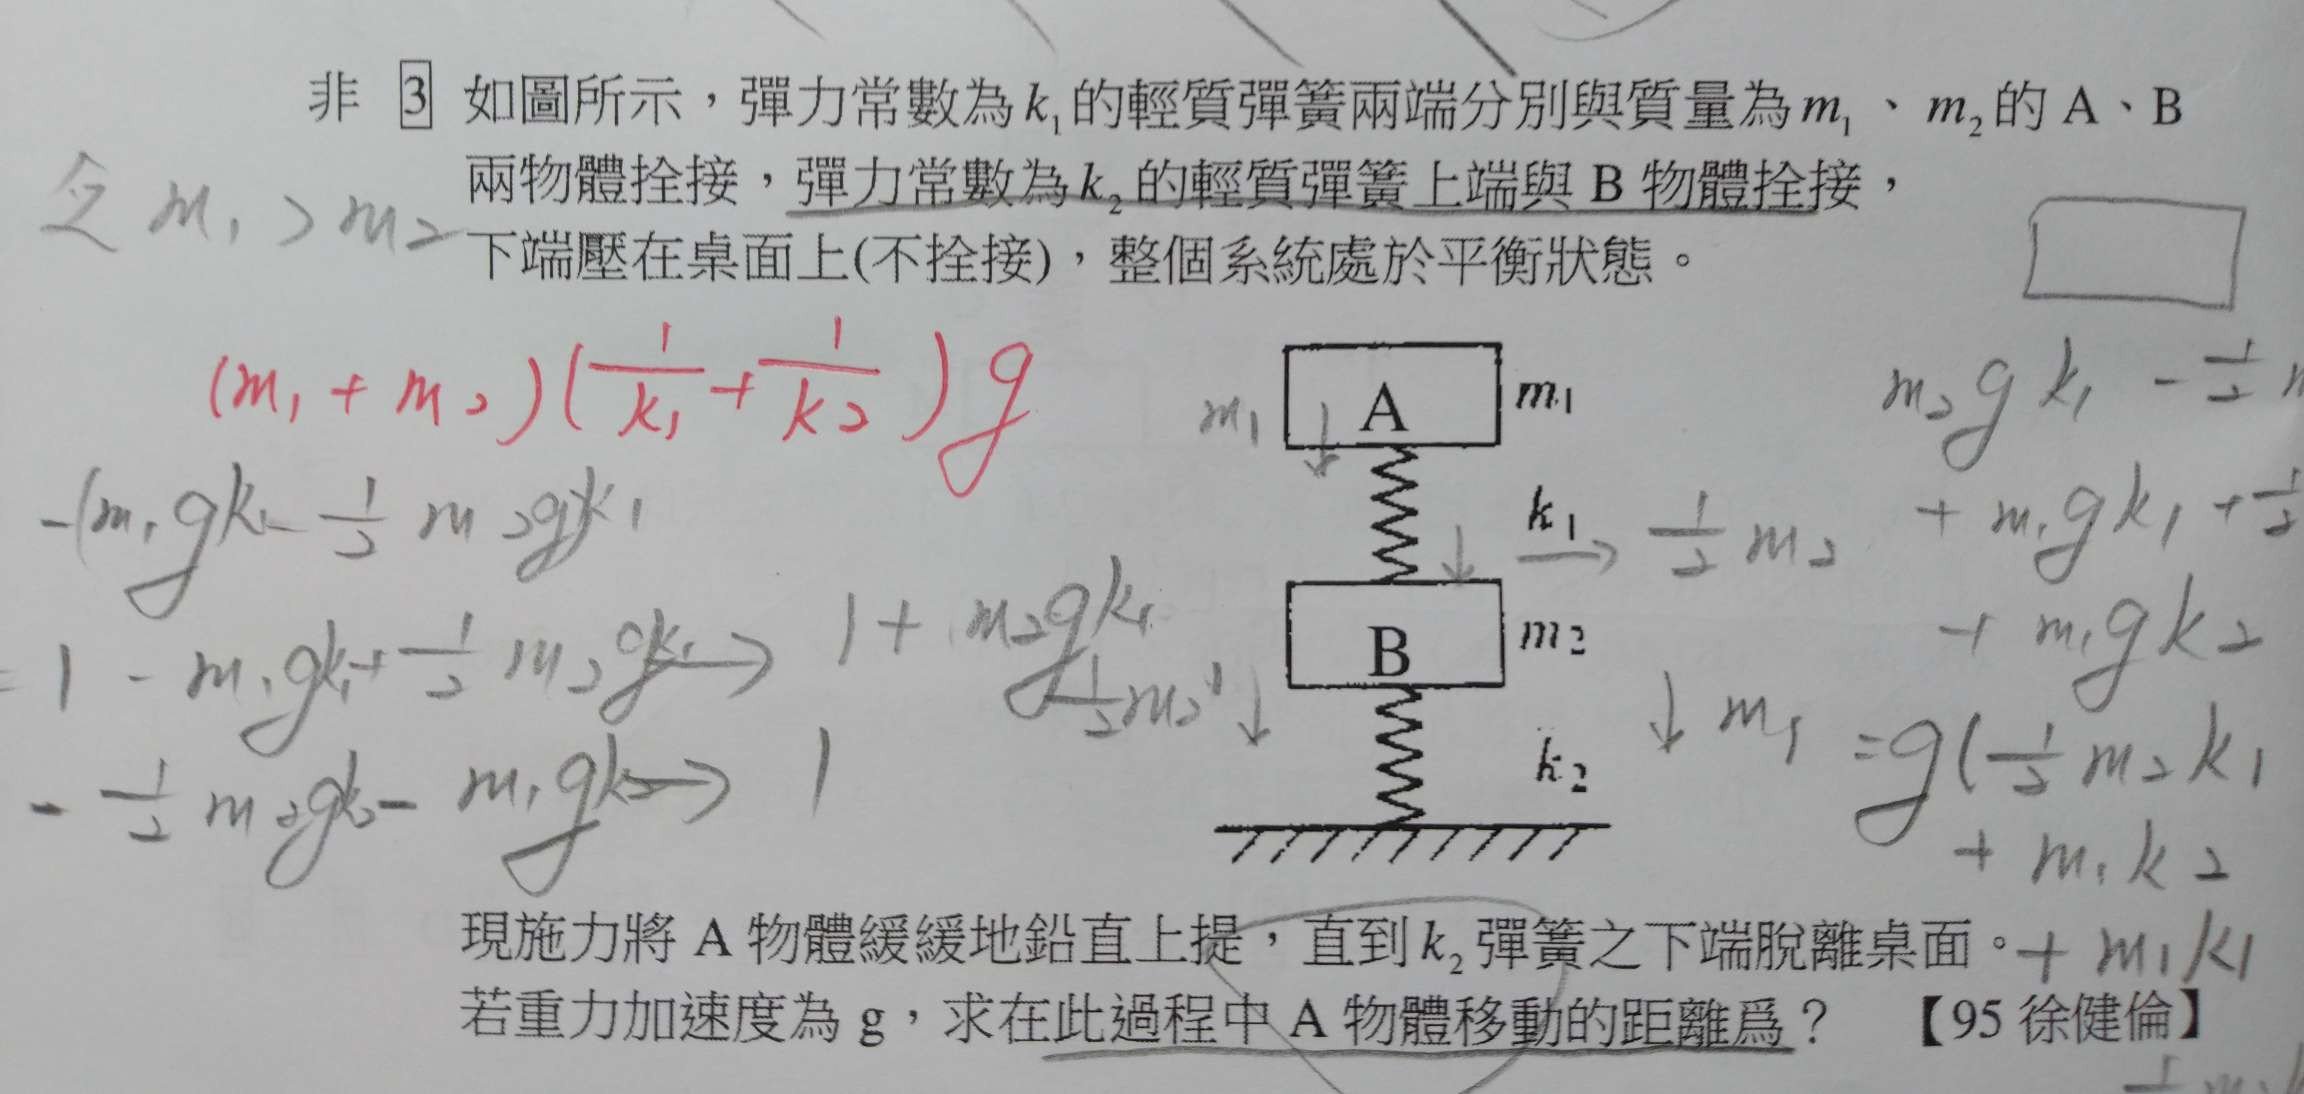 非 3 如圖所示，彈力常數為k₁的輕質彈簧兩端分別與質量為m₁、m₂的 A、B
兩物體拴接，彈力常數為k₂的輕質彈簧上端與 B 物體拴接，
下端壓在桌面上(不拴接)，整個系統處於平衡狀態。
令 m₁ > m₂
(m₁ + m₂)(1/k₁ + 1/k₂)g
-(m₁gk₁ - 1/2 m₂g)k₁
= 1 - m₁gk₁ + 1/2 m₂gk₁ → 1 + m₂gk₁
- 1/2 m₂gk₂ - m₁gk₂ → 1
m₁↓
A m₁
k₁ → 1/2 m₂
B m₂
1/2 m₂ ↓
k₂
↓ m₁
m₂gk₁ - 1/2
+ m₁gk₁ + 1/2
+ m₁gk₂
= g(1/2 m₂k₁
+ m₁k₂
+ m₁k₁
現施力將 A 物體緩緩地鉛直上提，直到k₂彈簧之下端脫離桌面。
若重力加速度為 g，求在此過程中 A 物體移動的距離爲？ 【95 徐健倫】